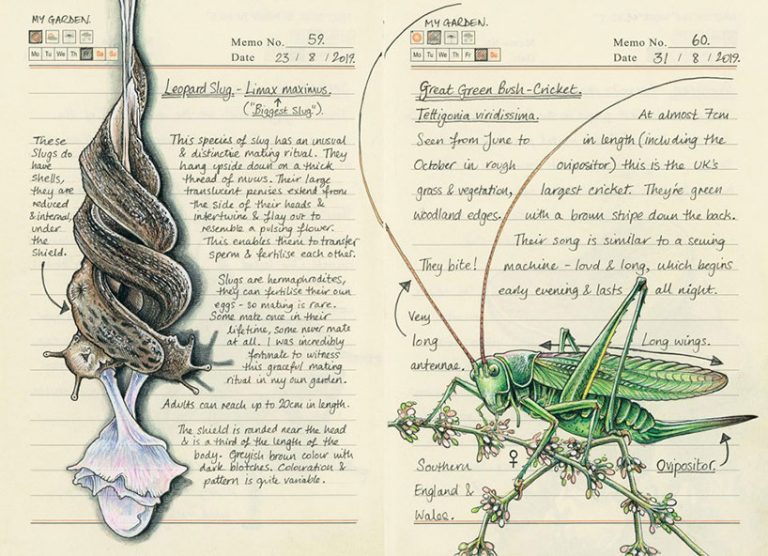 MY GARDEN.
Memo No. 59.
Mo Tu We Th Fr Sa Su
Date 23 / 8 / 2019.
Leopard Slug - Limax maximus.
("Biggest Slug").
These
Slugs do
have
shells,
they are
reduced
& internal,
under
the
Shield.
This species of slug has an unusual
& distinctive mating ritual. They
hang upside down on a thick
thread of mucus. Their large
translucent penises extend from
the side of their heads &
intertwine & flay out to
resemble a pulsing flower.
This enables them to transfer
sperm & fertilise each other.
Slugs are hermaphrodites,
they can fertilise their own
eggs - so mating is rare.
Some mate once in their
lifetime, some never mate
at all. I was incredibly
fortunate to witness
this graceful mating
ritual in my own garden.
Adults can reach up to 20cm in length.
The shield is rounded near the head
& is a third of the length of the
body. Greyish brown colour with
dark blotches. Colouration &
pattern is quite variable.
MY GARDEN.
Memo No. 60.
Mo Tu We Th Fr Sa Su
Date 31 / 8 / 2019.
Great Green Bush-Cricket.
Tettigonia viridissima. At almost 7cm
Seen from June to in length (including the
October in rough ovipositor) this is the UK's
grass & vegetation, largest cricket. They're green
woodland edges. with a brown stripe down the back.
Their song is similar to a sewing
They bite! machine - loud & long, which begins
early evening & lasts all night.
Very
long
antennae.
Long wings.
♀
Ovipositor.
Southern
England &
Wales.